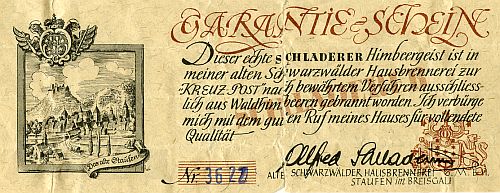 GARANTIE-SCHEIN
Dieser echte SCHLADERER Himbeergeist ist in
meiner alten Schwarzwälder Hausbrennerei zur
"KREUZ-POST" nach bewährtem Verfahren ausschliess-
lich aus Waldhimbeeren gebrannt worden. Ich verbürge
mich mit dem guten Ruf meines Hauses für vollendete
Qualität
Das alte Staufen
Nr. 3627
Alfred Schladerer
ALTE SCHWARZWÄLDER HAUSBRENNEREI G.M.B.H.
STAUFEN IM BREISGAU